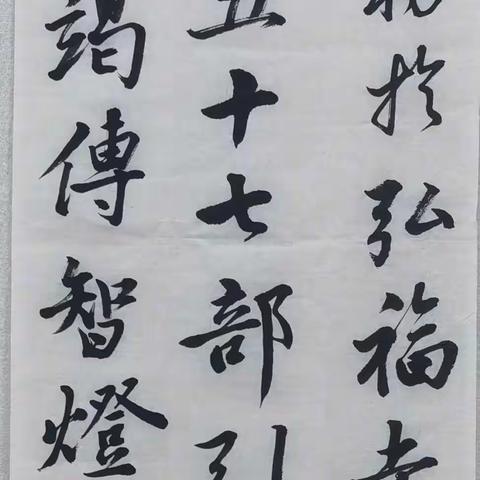 於弘福寺
五十七部引
竭傳智燈